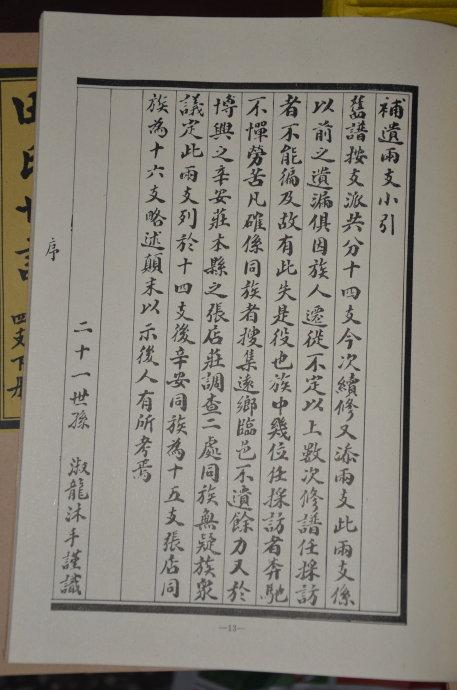 補遺兩支小引
舊譜按支派共分十四支今次續修又添兩支此兩支係
以前之遺漏俱因族人遷徙不定以上數次修譜任採訪
者不能徧及故有此失是役也族中幾位任採訪者奔馳
不憚勞苦凡確係同族者搜集遠鄉臨邑不遺餘力又於
博興之辛安莊本縣之張店莊調查二處同族無疑族衆
議定此兩支列於十四支後辛安同族為十五支張店同
族為十六支略述顛末以示後人有所考焉
二十一世孫 淑龍沐手謹識
序
—13—
田氏世譜
四支下册